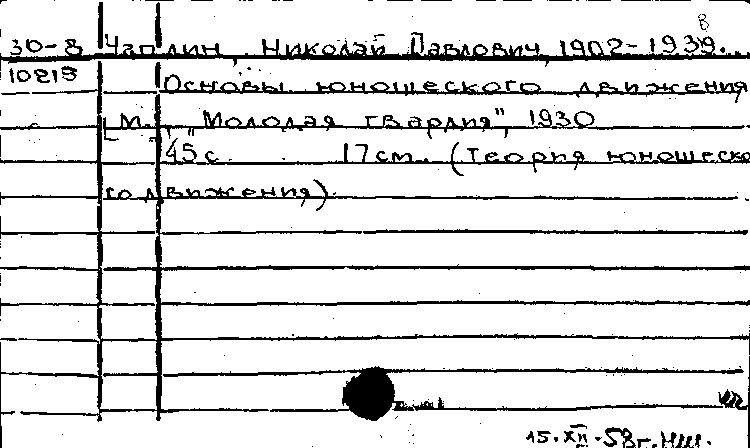 30-8 Чаплин, Николай Павлович, 1902-1939.
10219 Основы юношеского движения
[М.], "Молодая гвардия", 1930
45 с. 17 см. (Теория юношеско
го движения)
15.XII-58г.